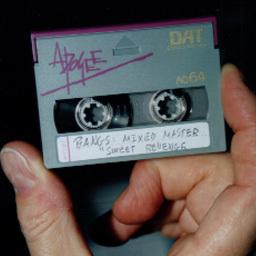 APOGEE
DAT
AD64
BANGS: MIXED MASTER
"SWEET REVENGE